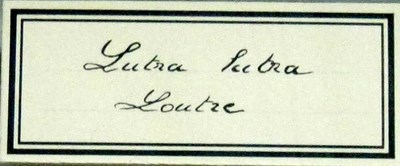 Lutra lutra
Loutre